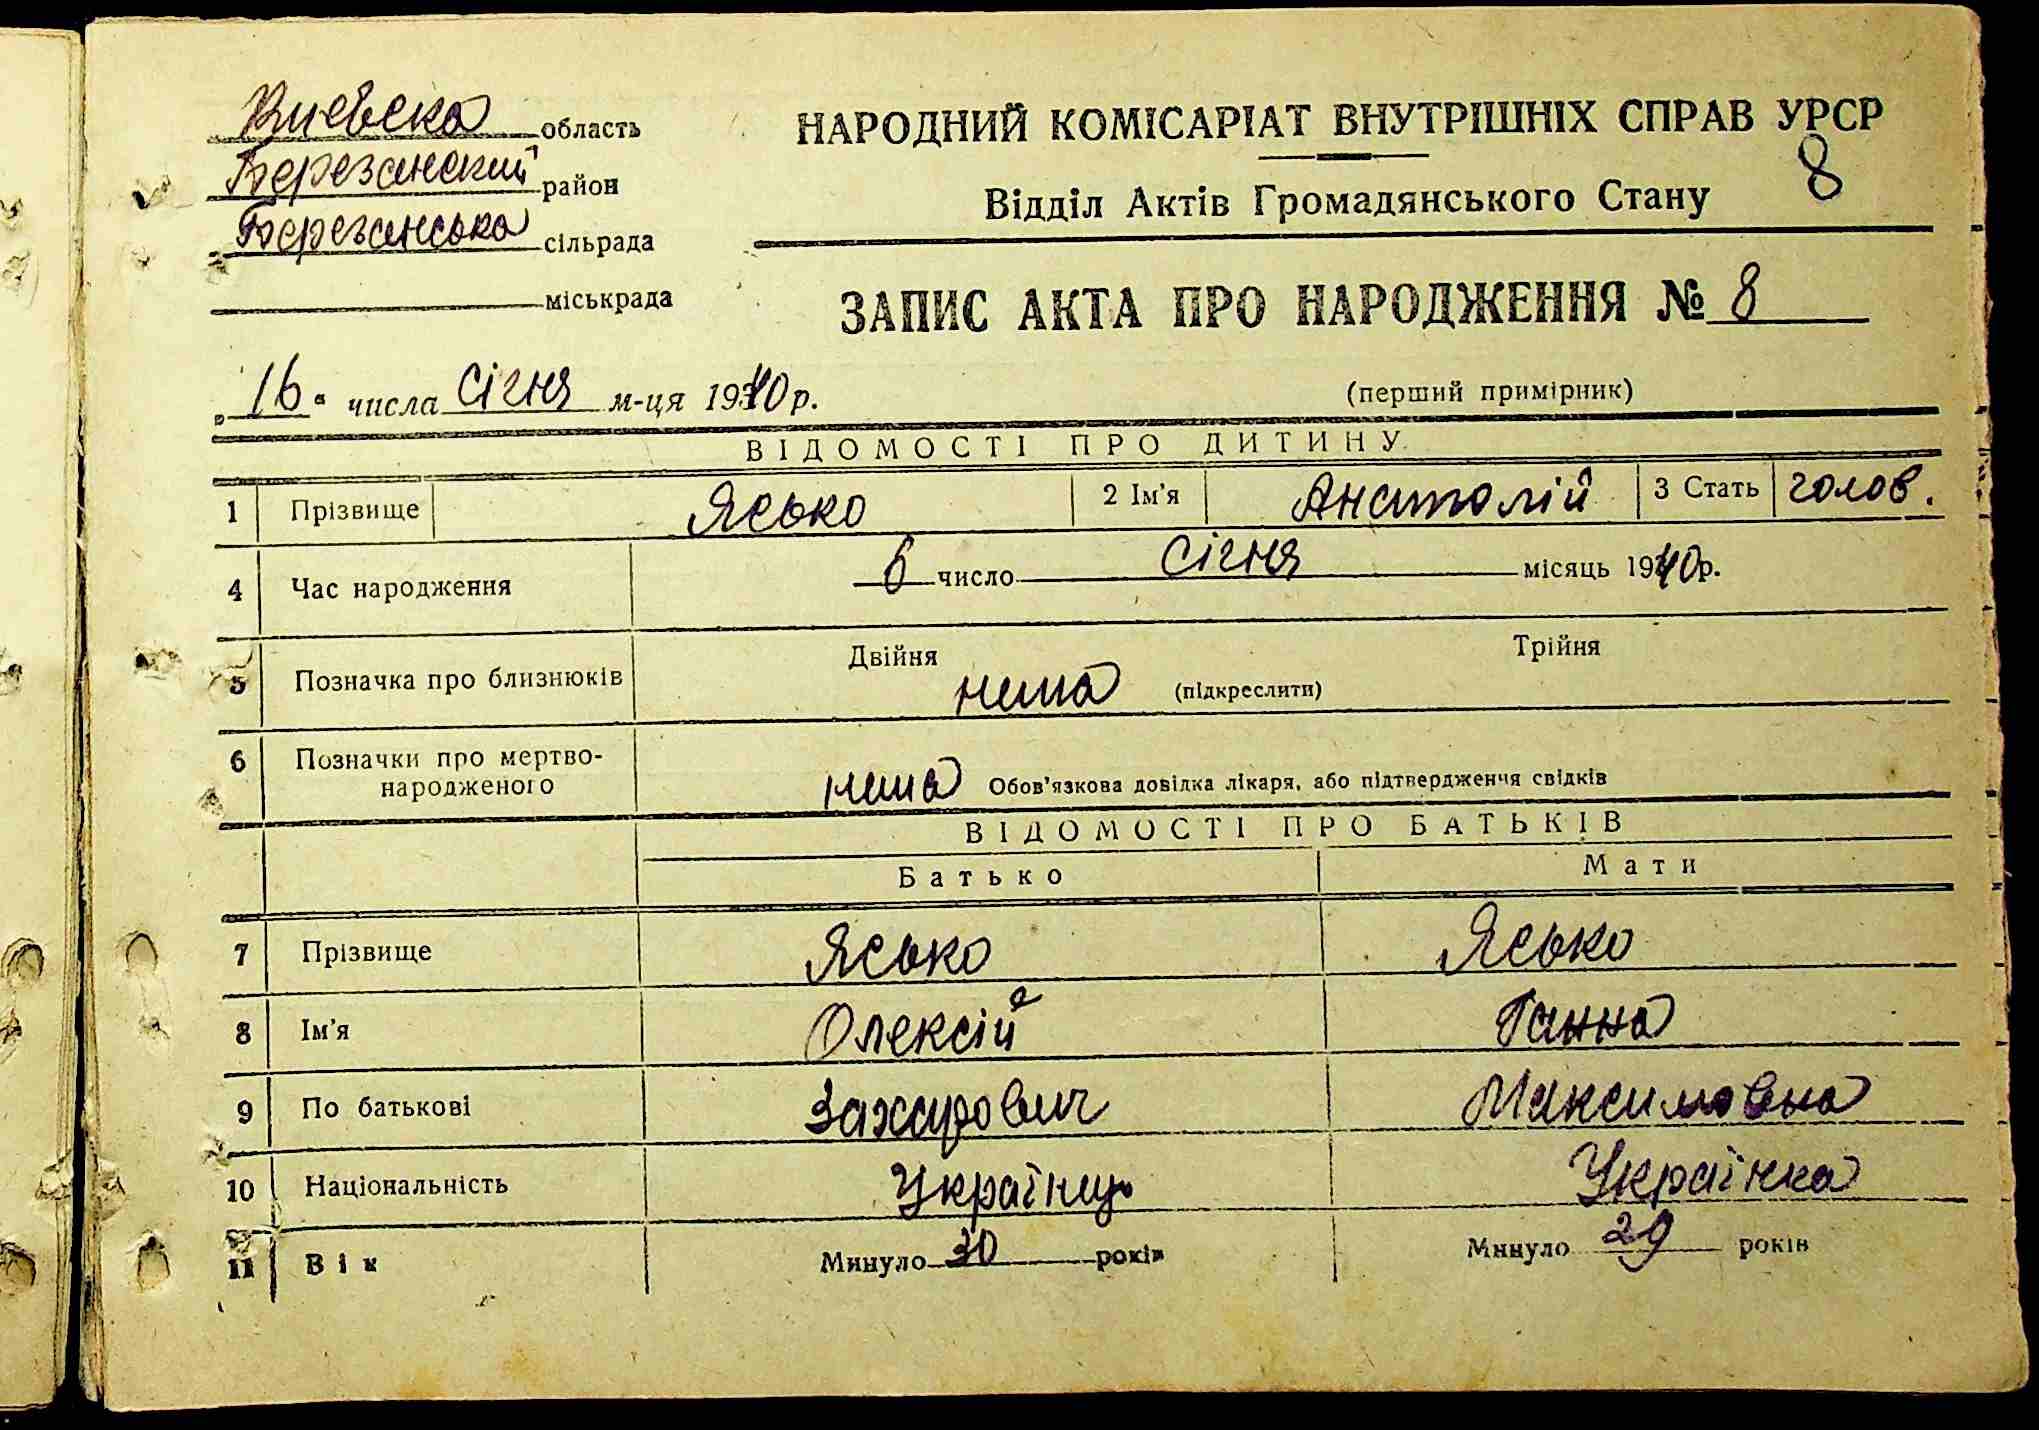 Киевска область
Березанский район
Березанська сільрада
міськрада
НАРОДНИЙ КОМІСАРІАТ ВНУТРІШНІХ СПРАВ УРСР
8
Відділ Актів Громадянського Стану
ЗАПИС АКТА ПРО НАРОДЖЕННЯ № 8
„16“ числа січня м-ця 1940 р.
(перший примірник)
ВІДОМОСТІ ПРО ДИТИНУ
1 Прізвище Ясько 2 Ім'я Анатолій 3 Стать чолов.
4 Час народження 6 число січня місяць 1940 р.
5 Позначка про близнюків Двійня нема (підкреслити) Трійня
6 Позначки про мертво-
народженого нема Обов'язкова довідка лікаря, або підтвердження свідків
ВІДОМОСТІ ПРО БАТЬКІВ
Батько Мати
7 Прізвище Ясько Ясько
8 Ім'я Олексій Ганна
9 По батькові Захарович Максимовна
10 Національність Українць Українка
11 Вік Минуло 30 років Минуло 29 років